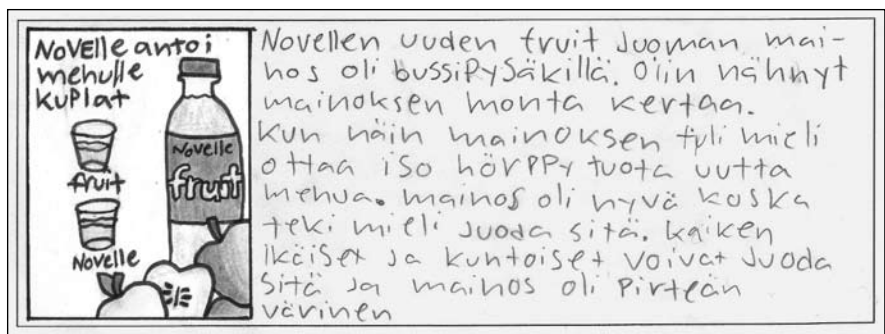 NoVElle antoi
mehulle
kuplat
fruit
Novelle
Novelle
fruit
Novellen uuden fruit Juoman mai-
hos oli bussiPySäkillä. Olin nähnyt
mainoksen monta kertaa.
Kun näin mainoksen tuli mieli
ottaa iso hörPPy tuota uutta
mehua. mainos oli hyvä koska
teki mieli Juoda sitä. Kaiken
Ikäiset Ja kuntoiset voivat Juoda
sitä Ja mainos oli Pirteän
värinen